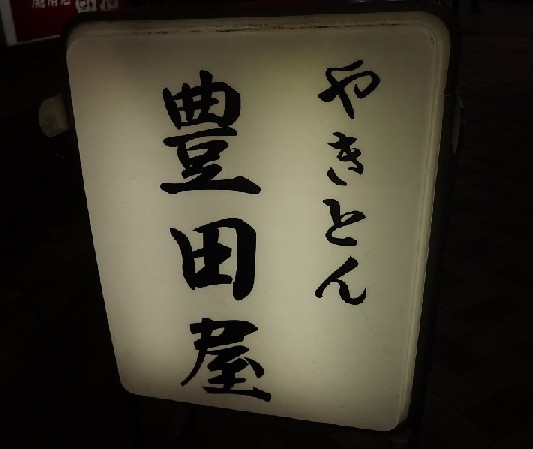 やきとん
豊田屋